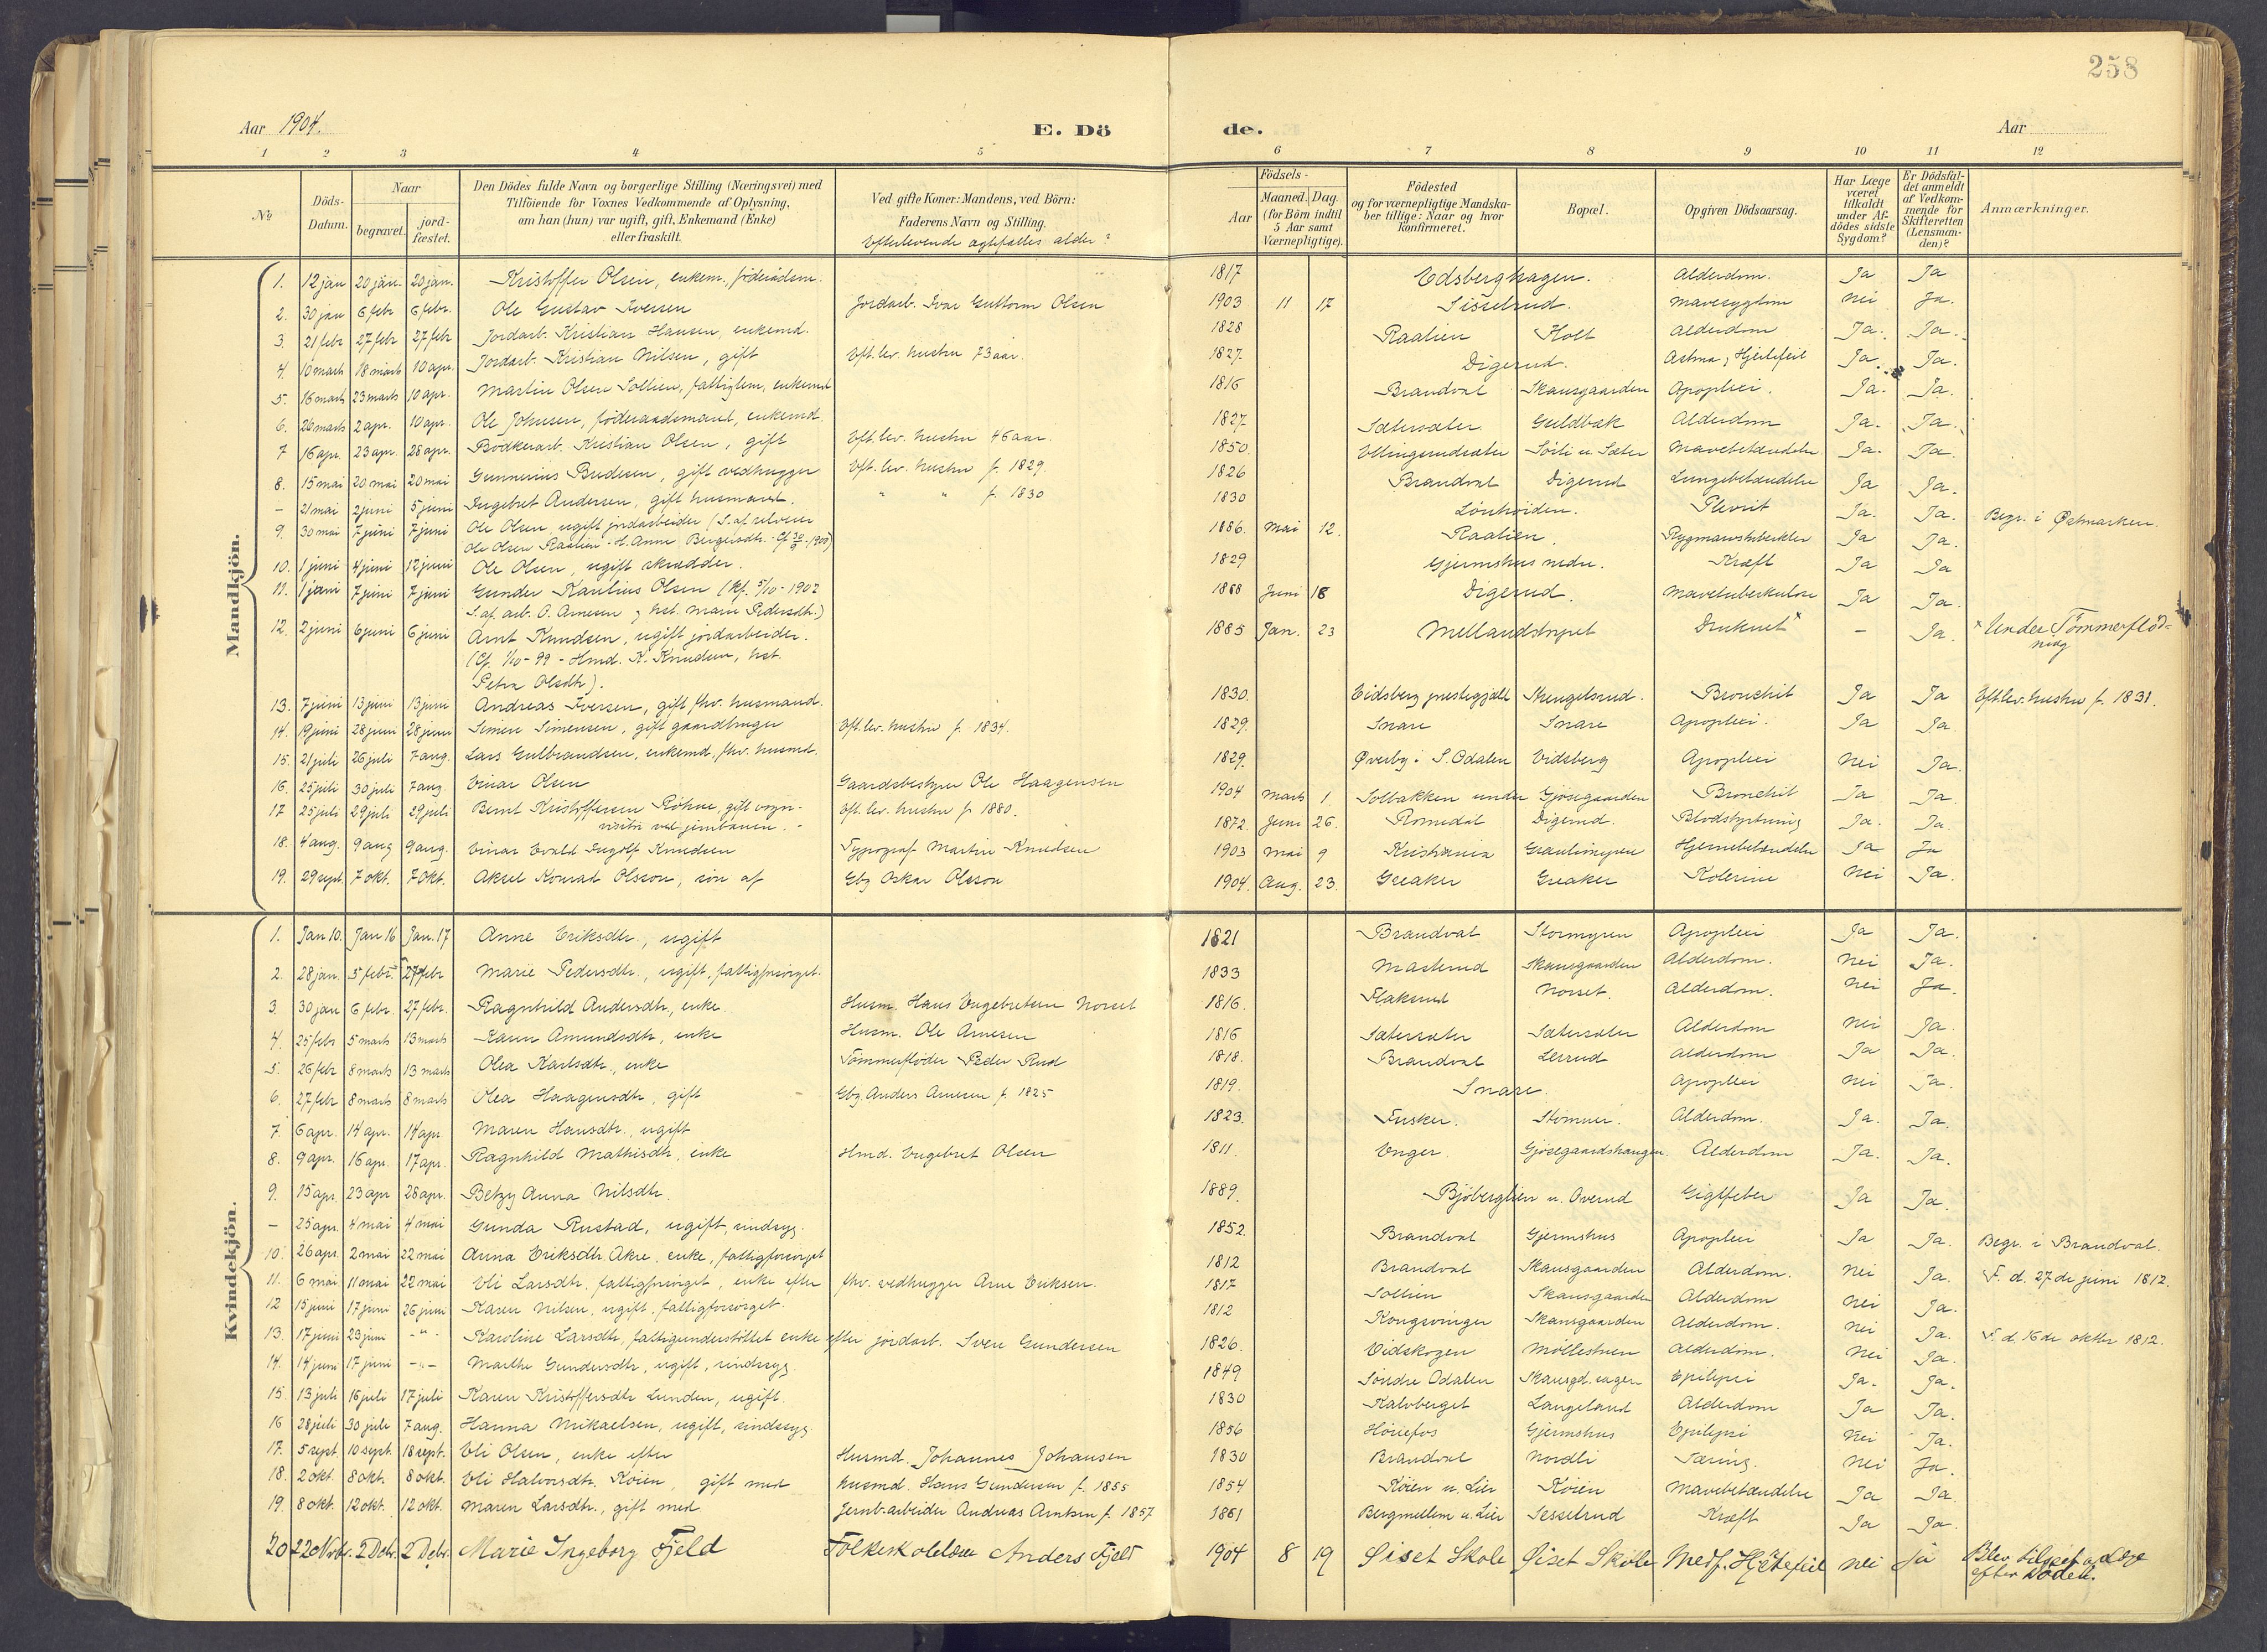 258
Aar 1904.
E. Döde.
Aar
1 2 3 4 5 6 7 8 9 10 11 12
No.
Döds-Datum.
Naar
begravet.
jord-fæstet.
Den Dödes fulde Navn og borgerlige Stilling (Næringsvei) med
Tilföiende for Voxnes Vedkommende af Oplysning,
om han (hun) var ugift, gift, Enkemand (Enke)
eller fraskilt.
Ved gifte Koner: Mandens, ved Börn:
Faderens Navn og Stilling.
Efterlevende ægtefælles alder?
Födsels-
Aar
Maaned. Dag
(for Börn indtil
5 Aar samt
Værnepligtige).
Födested
og for værnepligtige Mandska-
ber tillige: Naar og hvor
konfirmeret.
Bopæl.
Opgiven Dödsaarsag.
Har Læge
været
tilkaldt
under Af-
dödes sidste
Sygdom?
Er Dödsfal-
det anmeldt
af Vedkom-
mende for
Skifteretten
(Lensman-
den)?
Anmærkninger.
Mandkjön.
1. 12 jan 20 jan. 20 jan. Kristoffer Olsen, enkem., föderådem. 1817 Edsberghagen. Alderdom. Ja Ja
2. 30 jan 6 febr 6 febr. Ole Gustav Iversen Jordarb. Ivar Guttorm Olsen 1903 11 17 Sisselrud. Mavesygdom Nei Ja.
3. 21 febr 27 febr 27 febr Jordarb. Kristian Hansen, enkemd. 1828 Raalien Holt Alderdom Ja. Ja.
4. 10 marts 18 marts 10 apr. Jordarb. Kristian Nilsen, gift Eft.lev. hustru 73 aar. 1827. Digerud. Astma, Hjertefeil Ja. Ja.
5. 16 marts 23 marts 10 apr. Martin Olsen Sollien, fattiglem, enkemd 1816 Brandval Skansgaarden Apoplexi. Ja. Ja.
6. 26 marts 2 apr. 10 apr. Ole Johnsen, föderaadsmand, enkemd. 1827 Sætersæter Guldbæk Alderdom Ja. Ja.
7 16 apr. 23 apr. 28 apr. Bödkerarb. Kristian Olsen, gift Eft.lev. hustru 46 aar. 1850. Ellingsrudsæter Sörli u. Sæter Mavebetændelse Ja. Ja.
8. 15 mai 20 mai 20 mai Gunnerius Budesen, gift vedhugger Eft.lev. hustru f. 1829. 1826 Brandval Digerud Lungebetændelse Ja Ja.
- 21 mai 2 juni 5 juni Ingebret Andersen, gift husmand. " " f. 1830 1830 Lönhöiden. Plevrit Ja. Ja. Begr. i Østmarken.
9. 30 mai 7 juni 7 juni Ole Olsen, ugift jordarbeider (S. af selveier
Ole Olsen Raalien - H. Anne Bergersdtr. - Cf 30/9 1900) 1886. Mai 12. Raalien. Rygmarvstuberkler Ja Ja.
10. 1 juni 4 juni 12 juni Ole Olsen, ugift skrædder. 1829 Gjermshus nedre. Kræft Ja Ja
11. 1 juni 7 juni 7 juni Gunder Kaulius Olsen (Kf. 5/10-1902
S. af arb. O. Arnesen, hst. Marie Pedersdtr.) 1888 Juni 18 Digerud. Mavetuberkulose Ja Ja.
12. 2 juni 6 juni 6 juni Arnt Knudsen, ugift jordarbeider.
(Cf. 1/10-99 - Hmd. K. Knudsen, hst.
Petra Olsdtr). 1885 Jan. 23 Mellandstrypet Druknet x - Ja. x Under Tömmerflöd-
ning
13. 7 juni 13 juni 13 juni Andreas Iversen, gift fhv. husmand. 1830. Eidsberg prestegjæld Stengelsrud. Bronchit Ja Ja Eft.lev. hustru f. 1831.
14. 19 juni 28 juni 28 juni Simen Simensen, gift gaardbruger Eft.lev. hustru f. 1834. 1829. Snare Snare Apoplexi. Ja Ja
15. 21 juli 26 juli 7 aug. Lars Gulbrandsen, enkemd, fhv. husmd. 1829. Øverby i S. Odalen Eidsberg Apoplexi Nei Ja.
16. 25 juli 30 juli 7 aug. Einar Olsen Gaardsbestyrer Ole Haagensen 1904 Marts 1. Solbakken under Gjösegaarden Bronchit Ja Ja.
17 25 juli 29 juli 29 juli Bernt Kristoffersen Röhne, gift vogn-
visitør ved jernbanen. - Eft.lev. hustru f. 1880. 1872. Juni 26. Romedal Digerud. Blodstyrtning Ja. Ja
18. 4 aug. 9 aug 9 aug. Einar Evald Ingolf Knudsen Typograf Martin Knudsen 1903 Mai 9 Kristiania Granlimyren Hjernebetændelse Ja Ja
19. 29 sept. 7 okt. 7 okt. Aksel Konrad Olsson, sön af Gbg Oskar Olsson 1904. Aug. 23. Greaker Greaker Kolerine Nei Ja.
Kvindekjön.
1. Jan 10. Jan 16 Jan. 17 Anne Eriksdtr., ugift 1821 Brandval Stormyren Apoplexi Ja Ja.
2. 28 jan. 5 febr. 27 febr Marie Pedersdtr., ugift, fattigforsörget. 1833 Masterud Skansgaarden Alderdom. Nei Ja.
3. 30 jan 6 febr. 27 febr. Ragnhild Andersdtr, enke Husm. Hans Engebretsen Norset 1816. Flaksrud Norset. Alderdom. Nei Ja.
4. 25 febr 5 marts 13 marts Karen Amundsdtr, enke Husm. Ole Arnesen 1816 Sætersæter Sætersæter Alderdom Nei Ja.
5. 26 febr 8 marts 13 marts Olea Karlsdtr., enke Tömmerflöder Peder Rud 1818. Brandval Lerrud Alderdom Ja Ja.
6. 27 febr 8 marts 8 marts Olea Haagensdtr, gift Gbg. Anders Arnesen f. 1825 1819. Snare. Apoplexi Nei Ja.
7. 6 apr. 14 apr. 14 apr. Maren Hansdtr., ugift 1823. Fusker. Stömner. Alderdom. Ja. Ja.
8. 9 apr. 16 apr. 17 apr. Ragnhild Mathisdtr, enke Hmd. Engebret Olsen 1811. Enger. Gjösegaardshaugen. Alderdom Ja. Ja.
9. 15 apr. 23 apr 28 apr. Betzy Anna Nilsdtr. 1889. Bjöberglien u. Overud Gigtfeber Ja Ja.
- 25 apr. 4 mai 4 mai Gunda Rustad, ugift, sindssyg. 1852. Brandval Gjermshus Apoplexi Ja Ja. Begr. i Brandval.
10. 26 apr. 2 mai 22 mai Anna Eriksdtr. Akre, enke, fattigforsörget 1812 Brandval Skansgaarden Alderdom. Nei Ja. F. d. 27de juni 1812.
11. 6 mai 11 mai 22 mai Eli Larsdtr, fattigforsörget, enke efter fhv. vedhugger Arne Eriksen. 1817 Sollien Skansgaarden Alderdom Nei Ja.
12 15 juni 17 juni 26 juni Karen Nilsen, ugift, fattigforsörget. 1812 Kongsvinger Skansgaarden Alderdom. Nei Ja. F. d. 16de oktbr 1812.
13. 17 juni 23 juni - " - Karoline Larsdtr, fattigunderstöttet enke efter jordarb. Sven Gundersen 1826. Eidskogen Möllestuen Alderdom. Nei Ja.
14. 14 juni 17 juni - " - Marthe Gundersdtr, ugift, sindssyg. 1849 Söndre Odalen Skansgd. eager Epilepsi Ja. Ja.
15 13 juli 16 juli 17 juli Karen Kristoffersdtr Lunden, ugift. 1830 Kalvberget Langeland Alderdom Ja Ja.
16 28 juli 30 juli 7 aug. Hanna Mikaelsen, ugift, sindssyg. 1856 Hönefos Gjermshus Epilepsi Nei Ja.
17. 5 sept. 10 sept. 18 sept. Eli Olsen, enke efter Husmd. Johannes Johansen 1830 Brandval Nordli Tæring. Nei Ja.
18. 2 okt. 8 okt. 8 okt. Eli Halvorsdtr. Köien, gift med husmd. Hans Gundersen f. 1855 1854 Köien u. Lier Köien Mavebetændelse Ja Ja
19. 8 okt. 12 okt. 12 okt. Maren Larsdtr., gift med Jernb.arbeider Andreas Arntsen f. 1857 1861 Bergmellem u. Lier Sesselrud Kræft Ja Ja.
20 22 Novbr. 2 Debr. 2 Debr. Marie Ingeborg Fjeld Folkeskolelærer Anders Fjeld 1904 8 19 Öiset Skole Öiset Skole Medf. Hjertefeil nei Ja Blev tilseet af Læge
efter Döden.